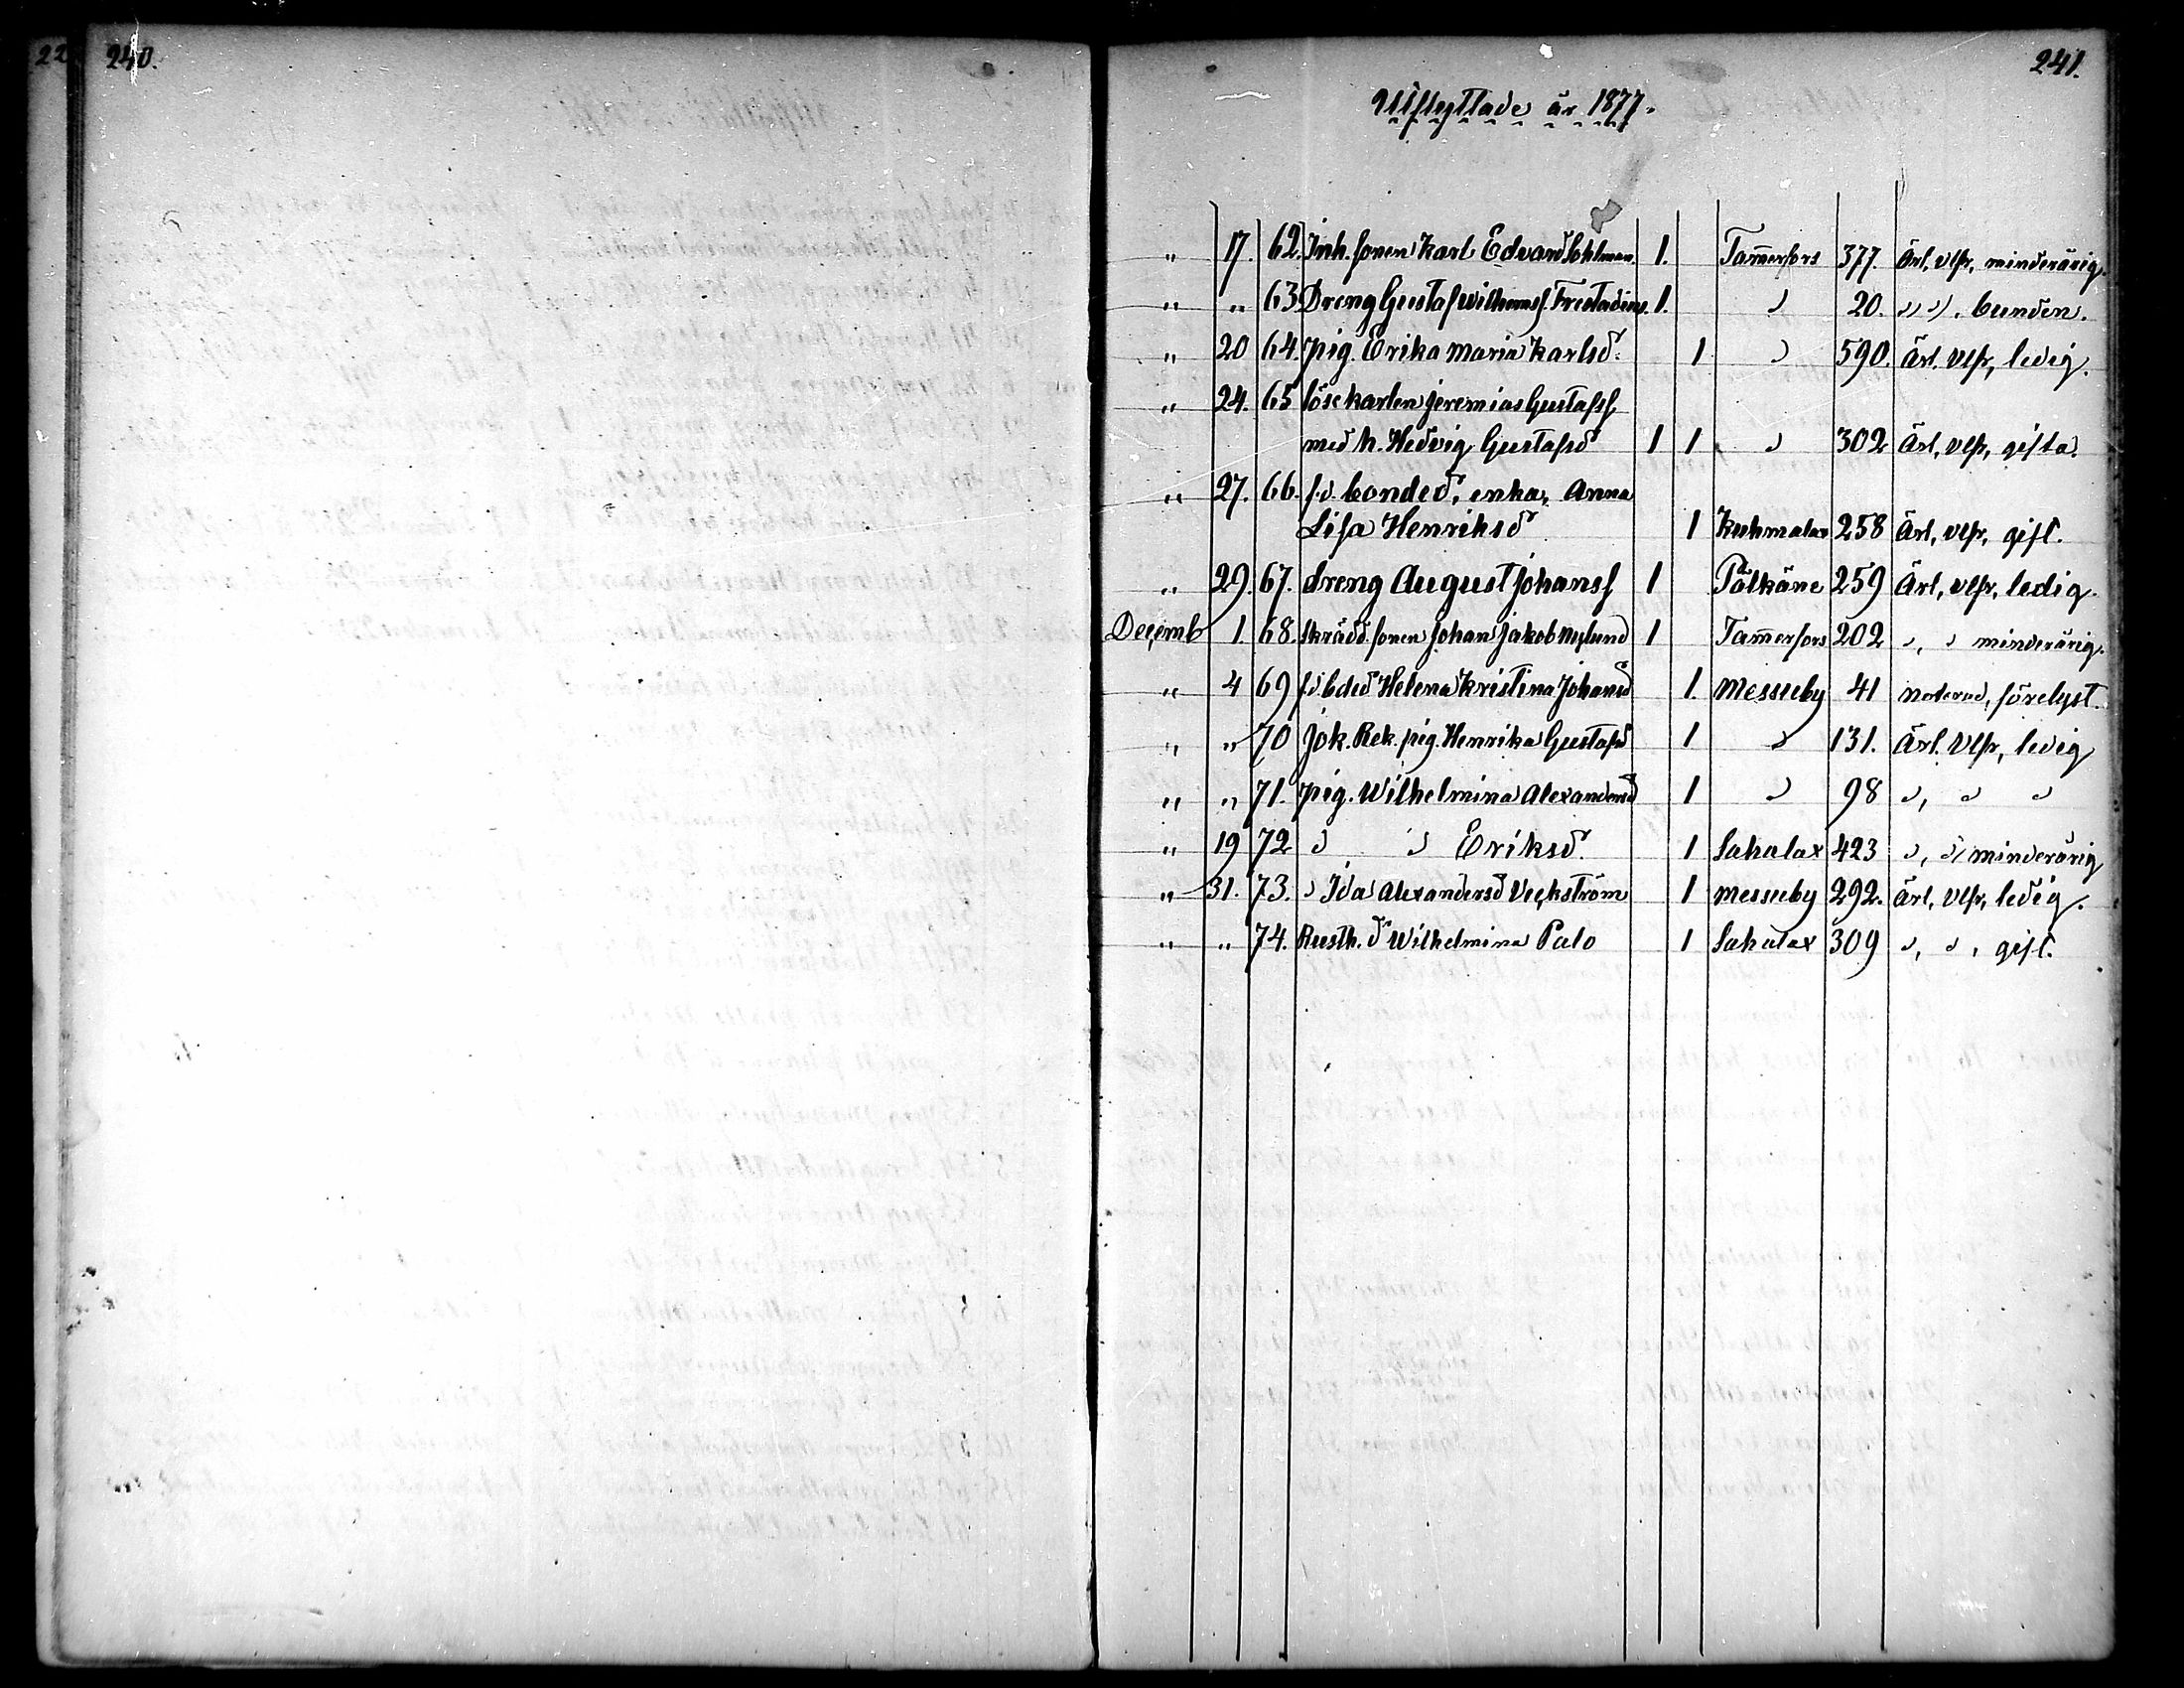 22
240.
241.
Utflyttade år 1877.
" 17. 62. Inh. sonen Karl Edvard Sohlman. 1. Tam̄erfors 377. Ärl, vlfr, minderårig.
" " 63 Dreng Gustaf Wilhemsf. 1. " 20. " " . bunden.
" 20 64. pig. Erika Maria Karlsd. 1 " 590. Ärl. vlfr, ledig.
" 24. 65 lösekarlen Jeremias Gustafsf
med h. Hedvig Gustafsd 1 1 " 302 Ärl, vlfr, gifta.
" 27. 66. f.d. bonded, enka, Anna
Lisa Henriksd 1 Kuhmalax 258 Ärl, vlfr, gift.
" 29. 67. dreng August Johansf 1 Pälkäne 259 Ärl, vlfr, ledig.
Decemb 1. 68. Skrädd. sonen Johan Jakob Nylund 1 Tam̄erfors 202 ", " minderårig.
" 4 69 f.d. bded Helena Kristina Johansd 1. Messuby 41 förelyst.
" " 70 Jok. Rek. pig. Henrika Gustafsd 1 " 131. Ärl. vlfr, ledig
" " 71. pig. Wilhelmina Alexandersd 1 " 98 ", " "
" 19 72 " " Eriksd. 1 Sahalax 423 ", " minderårig
" 31. 73. " Ida Alexandersd Veckström 1 Messuby 292. Ärl, vlfr, ledig.
" " 74. Rusth. d Wilhelmina Palo 1 Sahalax 309 ", " , gift.